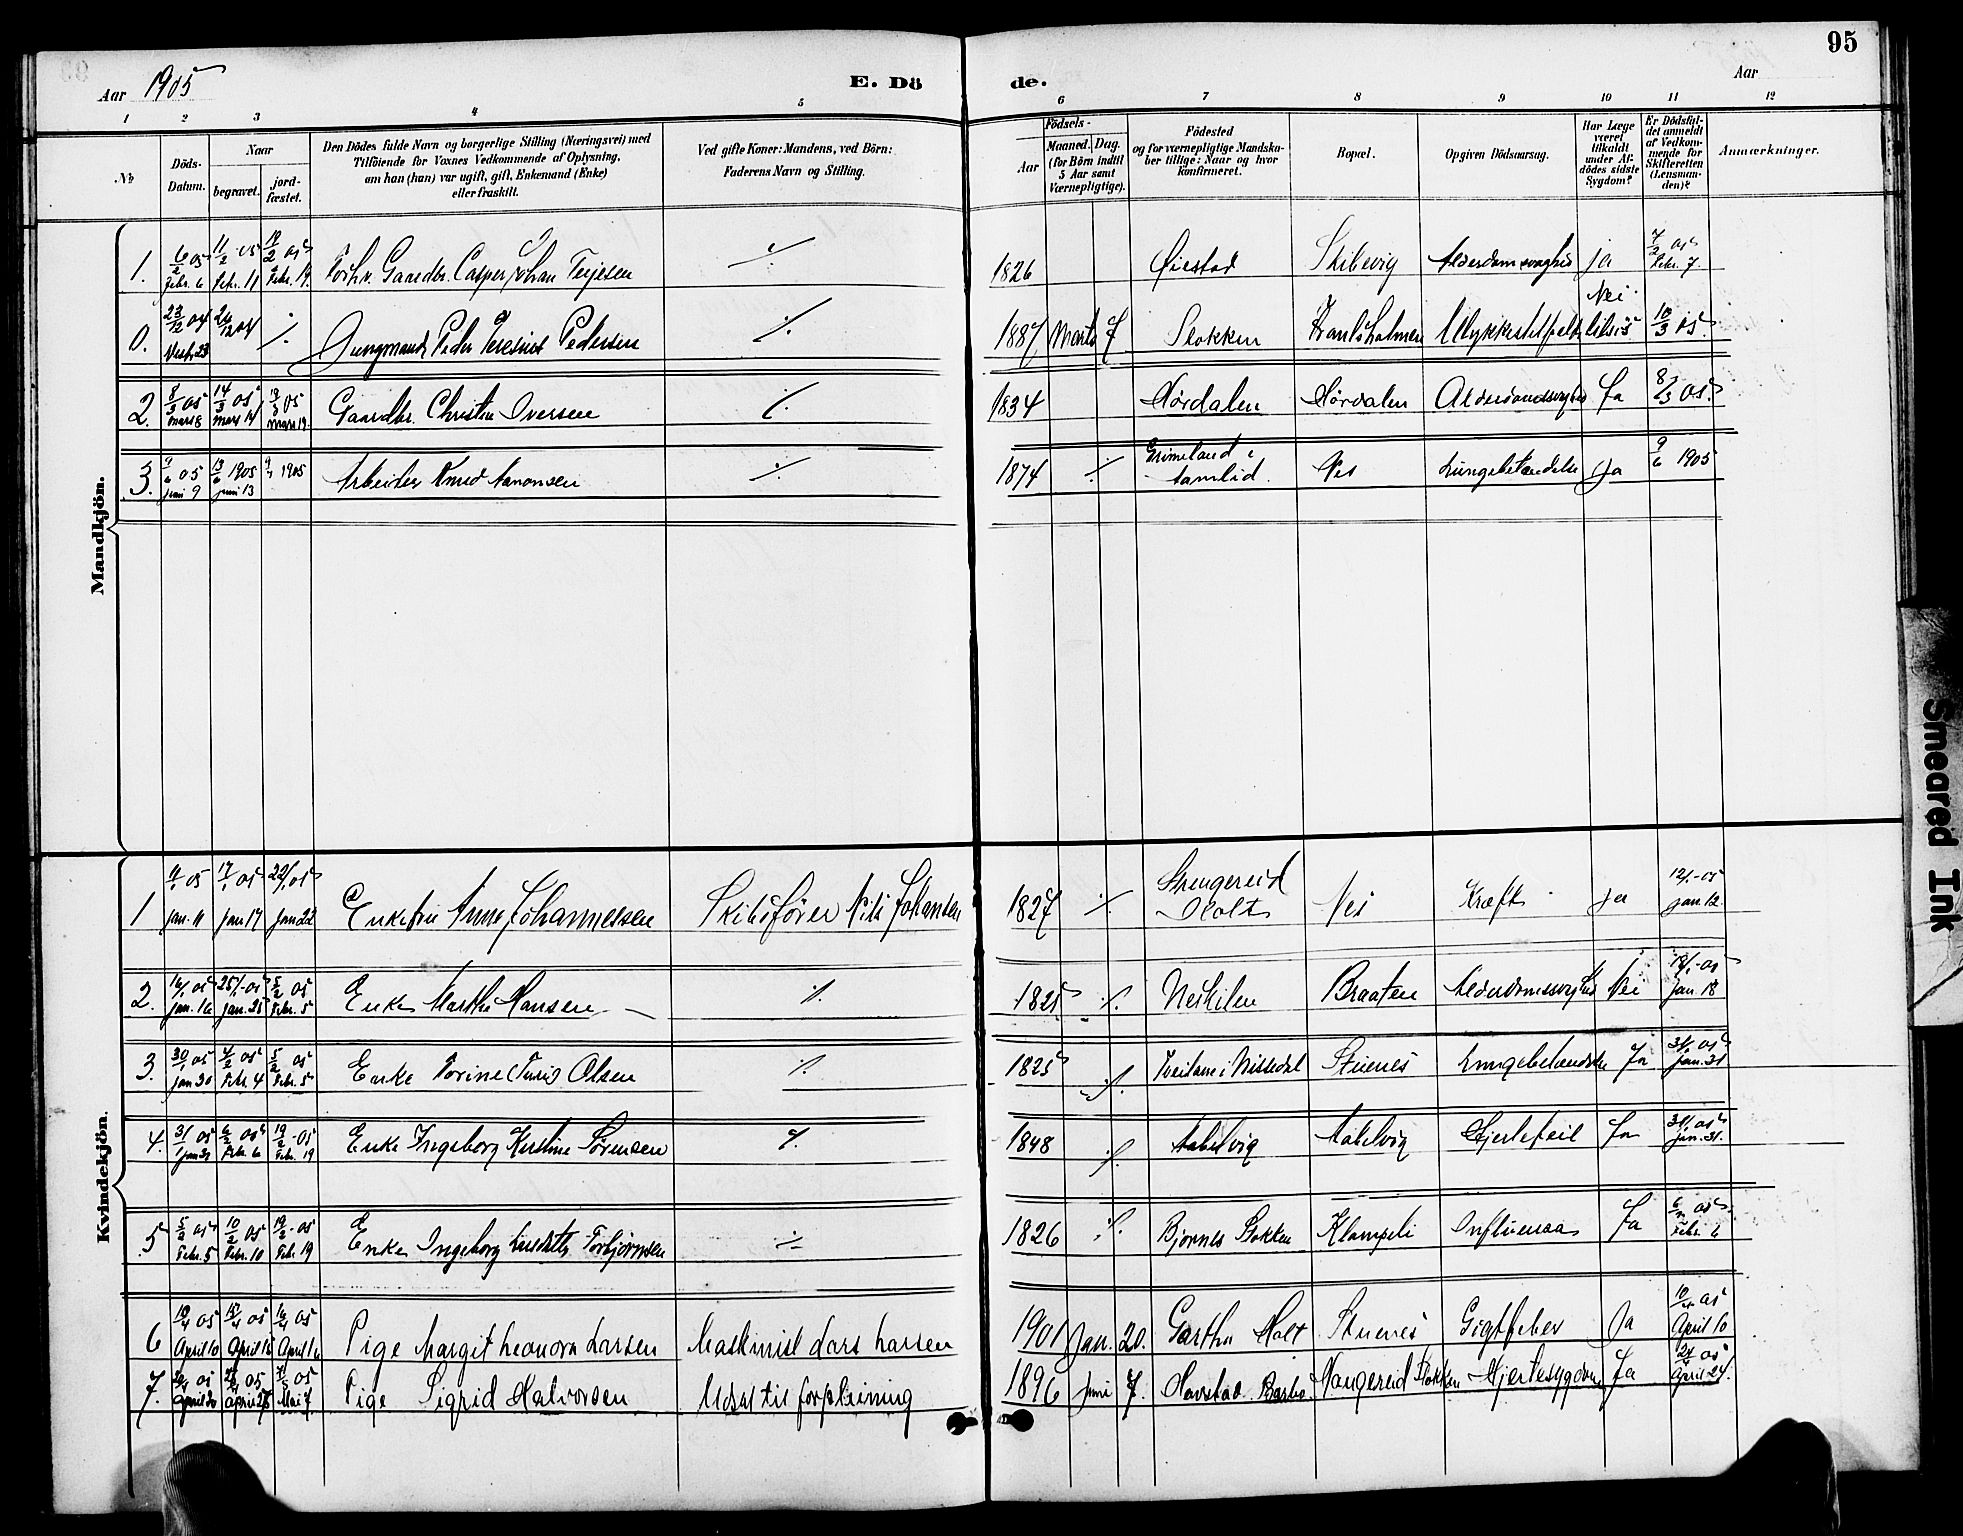 95
Aar 1905 E. Dö de. Aar
1 2 3 4 5 6 7 8 9 10 11 12
№
Döds-Datum.
Naar
begravet.
jord-fæstet.
Den Dödes fulde Navn og borgerlige Stilling (Næringsvei) med
Tilföiende for Voxnes Vedkommende af Oplysning,
om han (hun) var ugift, gift, Enkemand (Enke)
eller fraskilt.
Ved gifte Koner: Mandens, ved Börn:
Faderens Navn og Stilling.
Födsels-
Aar
Maaned. Dag.
(for Börn indtil
5 Aar samt
Værnepligtige).
Födested
og for værnepligtige Mandska-
ber tillige: Naar og hvor
konfirmeret.
Bopæl.
Opgiven Dödsaarsag.
Har Læge
været
tilkaldt
under Af-
dödes sidste
Sygdom?
Er Dödsfal-
det anmeldt
af Vedkom-
mende for
Skifteretten
(Lensman-
den)?
Anmærkninger.
Mandkjön.
1. 6/2 05 11/2 05 19/2 05 7/2 05
Febr. 6 Febr. 11 Febr. 19. Forhv. Gaardbr. Casper Johan Terjesen ./. 1826 Øiestad Skibevig Alderdomsvaghed ja Febr. 7.
0. 23/12 04 26/12 04 ./. Jungmand Peder Pedersen ./. 1887 Marts 7 Stokken Ulykkestilfælde Nei 10/3 05
2. 8/3 05 14/3 05 19/3 05 Gaardbr. Christen Iversen ./. 1834 Mørdalen Mørdalen Alderdomssvaghed Ja 8/3 05.
Mars 8 Mars 14 Mars 19.
3. 9/6 05 13/6 1905 1905 Arbeider Knud Aanonsen ./. 1874 ./. Grimeland i Aamlid. Nes Lungebetændelse Ja 9/6 1905
juni 9 juni 13
Kvindekjön.
1 11/1 05 17/1 05 22/1 05 12/1-05
Jan. 11 Jan 17 Jan 22 Enkefru Anne Johannessen Skibsfører Nils Johansen 1827 ./. Strengereid Holt Nes Kræft ja Jan 12.
2. 16/1 05 25/1-05 5/2 05 18/1-05
Jan. 16 Jan. 25 Febr. 5 Enke Marthe Hansen ./. 1825 ./. Neskilen Braaten Alderdomssvaghed Nei Jan. 18
3. 30/1 05 4/2 05 5/2 05 31/1 05
Jan 30 Febr. 4 Febr. 5 Enke Torine (Turi) Olsen ./. 1825 ./. Stuenes Lungebetændelse Ja Jan. 31
4. 31/1 05 6/2 05 19/2-05 31/1 05
Jan 31 Febr. 6 Febr. 19 Enke Ingeborg Kirstine Sørensen ./. 1848 ./. Aakelvig Aakelvig Hjertefeil Ja Jan. 31.
5 5/2 05 10/2 05 19/2-05 6/2 05
Febr. 5 Febr. 10 Febr. 19 Enke Ingeborg Torbjørnsen ./. 1826 ./. Bjornes Stokken Klampeli Influensa Ja Febr. 6
6 10/4 05 15/4 05 16/4 05 10/4 05
April 10 April 15 April 16 Pige Margit Leonora Larsen Maskinist Lars Larsen 1901 Jan. 20. Gartha Holt Stuenes Gigtfeber Ja April 10
7. 05 05 7/5 05 24/4 05
April 20 April Mai 7. Pige Sigrid Halvorsen Udsat til forpleining 1896 Juni 7. Havstad Barbo Mangereid Stokken Hjertesygdom Ja April 24.
Smeared Ink